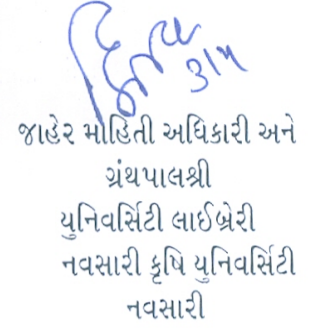 ૩/૫
જાહેર માહિતી અધિકારી અને
ગ્રંથપાલશ્રી
યુનિવર્સિટી લાઈબ્રેરી
નવસારી કૃષિ યુનિવર્સિટી
નવસારી